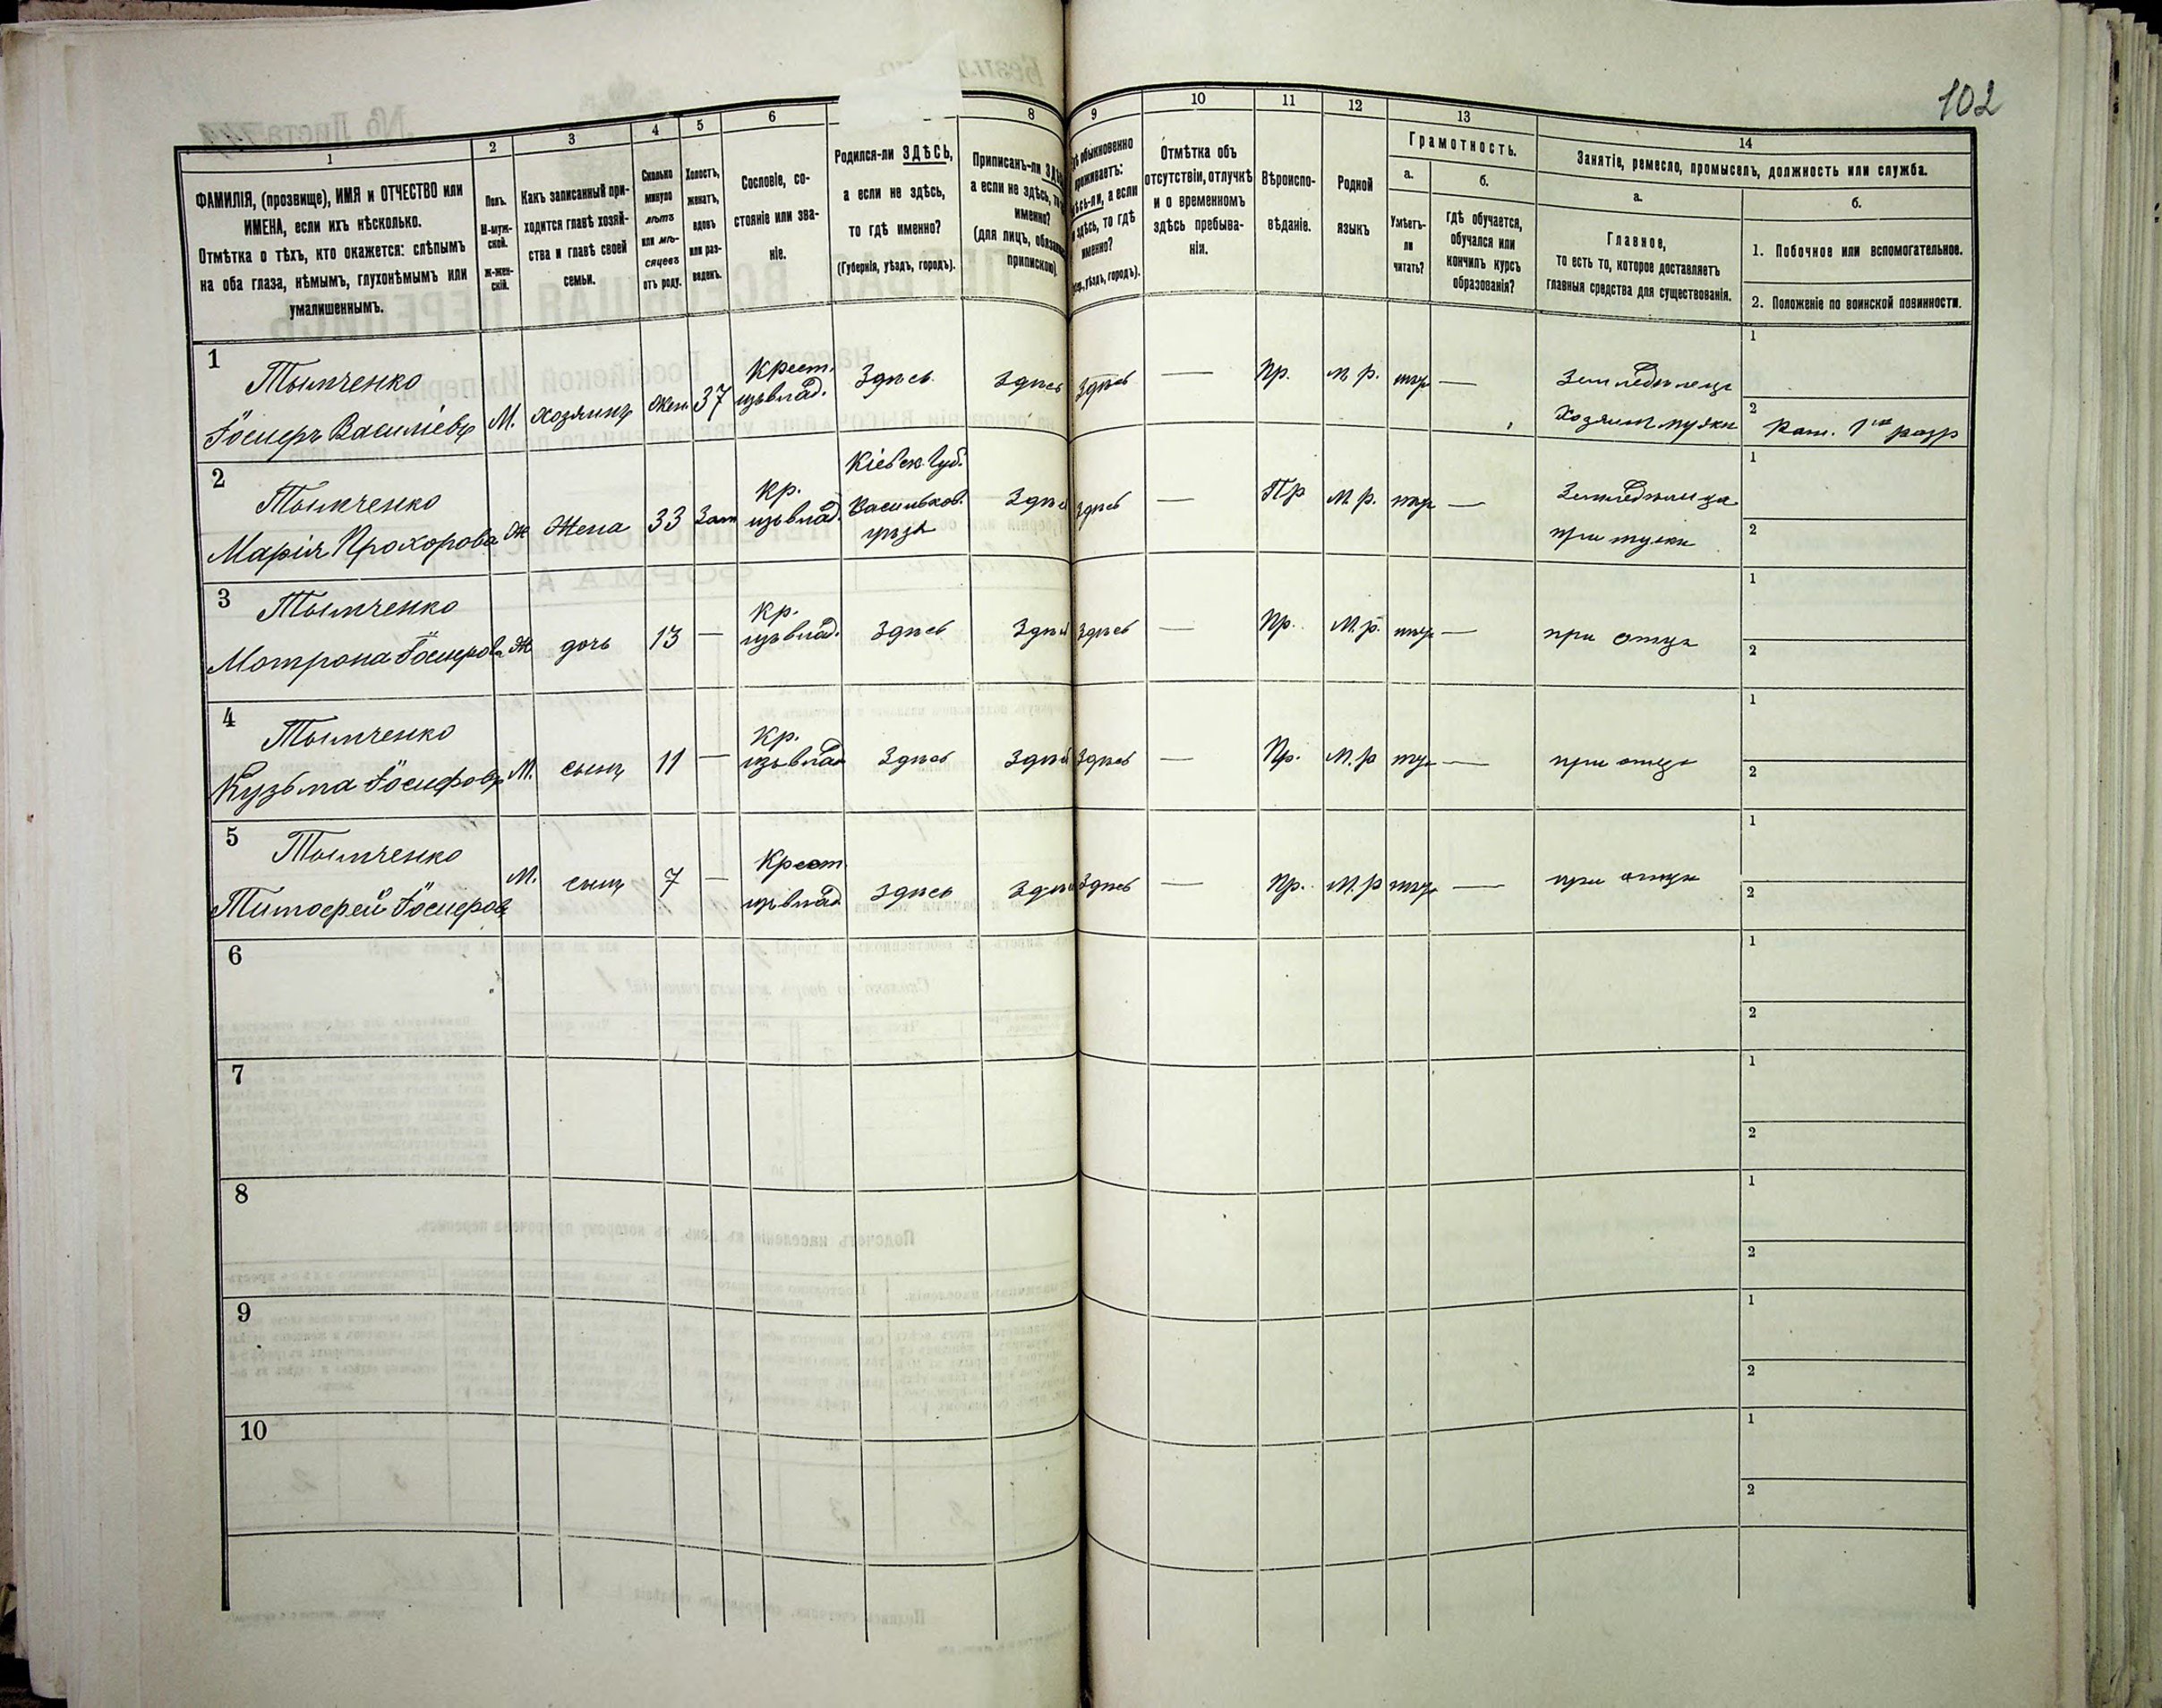 102
1
ФАМИЛІЯ, (прозвище), ИМЯ и ОТЧЕСТВО или
ИМЕНА, если ихъ нѣсколько.
Отмѣтка о тѣхъ, кто окажется: слѣпымъ
на оба глаза, нѣмымъ, глухонѣмымъ или
умалишеннымъ.
2
Полъ.
М-муж-
ской.
Ж-жен-
скій.
3
Какъ записанный при-
ходится главѣ хозяй-
ства и главѣ своей
семьи.
4
Сколько
минуло
лѣтъ
или мѣ-
сяцевъ
отъ роду.
5
Холостъ,
женатъ,
вдовъ
или раз-
веденъ.
6
Сословіе, со-
стояніе или зва-
ніе.
Родился-ли ЗДѢСЬ,
а если не здѣсь,
то гдѣ именно?
(Губернія, уѣздъ, городъ).
8
Приписанъ-ли
а если не здѣсь,
именно?
(для лицъ,
припискою).
9
обыкновенно
проживаетъ:
а если
здѣсь, то гдѣ
именно?
уѣздъ, городъ).
10
Отмѣтка объ
отсутствіи, отлучкѣ
и о временномъ
здѣсь пребыва-
ніи.
11
Вѣроиспо-
вѣданіе.
12
Родной
языкъ
13
Грамотность.
а.
Умѣетъ-
ли
читать?
б.
гдѣ обучается,
обучался или
кончилъ курсъ
образованія?
14
Занятіе, ремесло, промыселъ, должность или служба.
а.
Главное,
то есть то, которое доставляетъ
главныя средства для существованія.
б.
1. Побочное или вспомогательное.
2. Положеніе по воинской повинности.
1
Тымченко
Іосифъ Василіевъ
М.
хозяинъ
жен.
37
Крест.
изъ влад.
Здѣсь
здѣсь
здѣсь
—
Пр.
м. р.
—
Земледѣлецъ
Хозяин
1
2
Рат. 1го разр
2
Тымченко
Марія Прохорова
Ж
Жена
33
Зам
кр.
изъ влад.
Кіевск. Губ.
Васильков.
уѣзд
Здѣсь
здѣсь
—
Пр
М. р.
—
Земледѣлица
при
1
2
3
Тымченко
Мотрона Іосифова
Ж
дочь
13
—
кр.
изъ влад.
Здѣсь
Здѣсь
здѣсь
—
Пр.
М. р.
—
при отцѣ
1
2
4
Тымченко
Кузьма Іосифовъ
М.
сынъ
11
—
кр.
изъ влад
Здѣсь
Здѣсь
здѣсь
—
Пр.
М. р
—
при отцѣ
1
2
5
Тымченко
Тимофей Іосифовъ
М.
сынъ
7
—
Крест
изъ влад
здѣсь
здѣсь
здѣсь
—
Пр.
М. р
—
при отцѣ
1
2
6
1
2
7
1
2
8
1
2
9
1
2
10
1
2